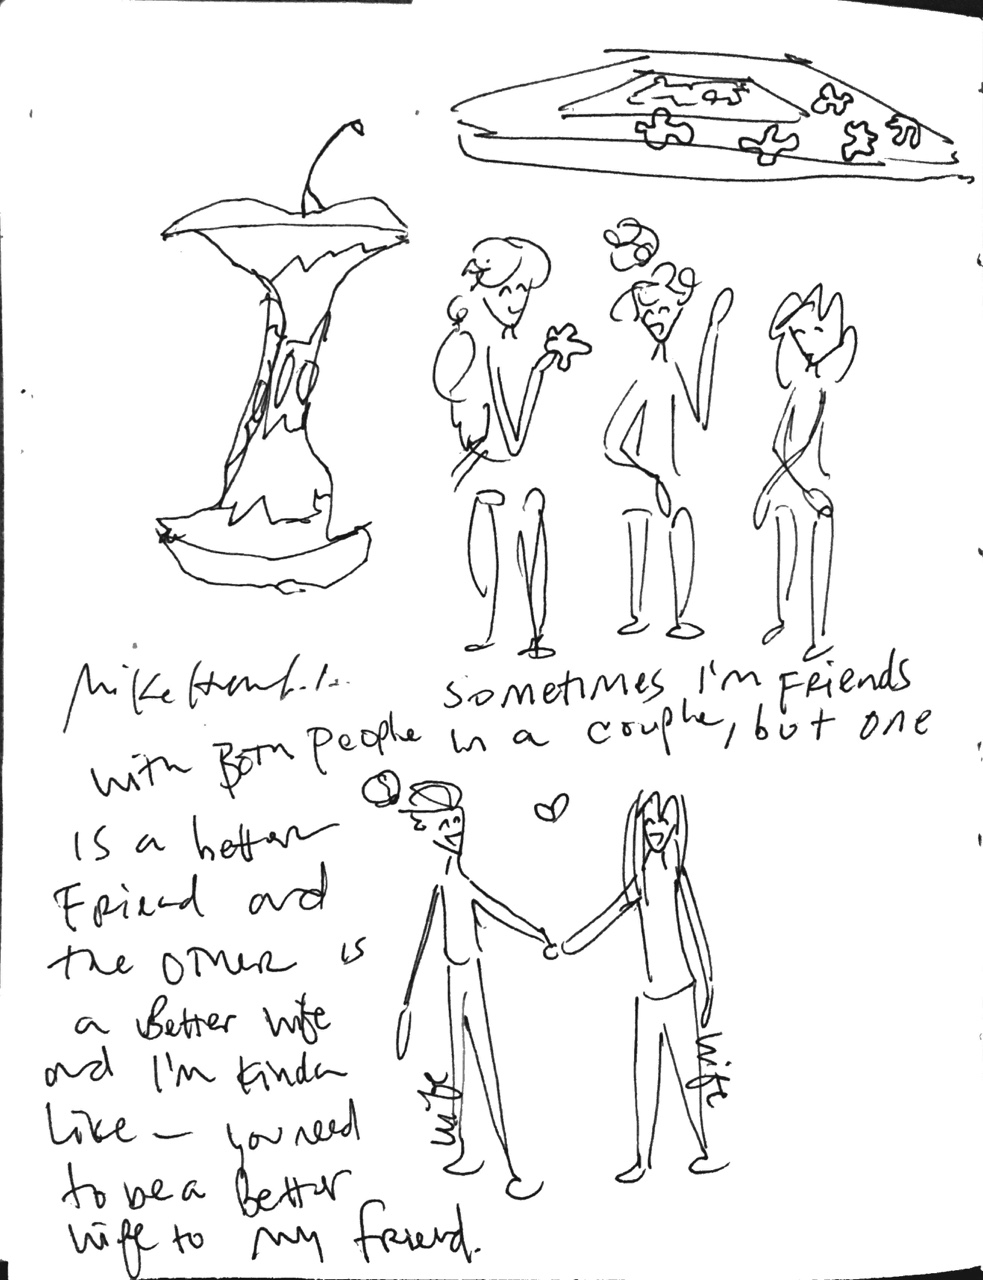 Mike
sometimes I'm Friends
with Both people in a couple, but one
is a better
Friend and
the other is
a Better wife
and I'm kinda
Like — you need
to be a Better
wife to my friend.
wife
wife